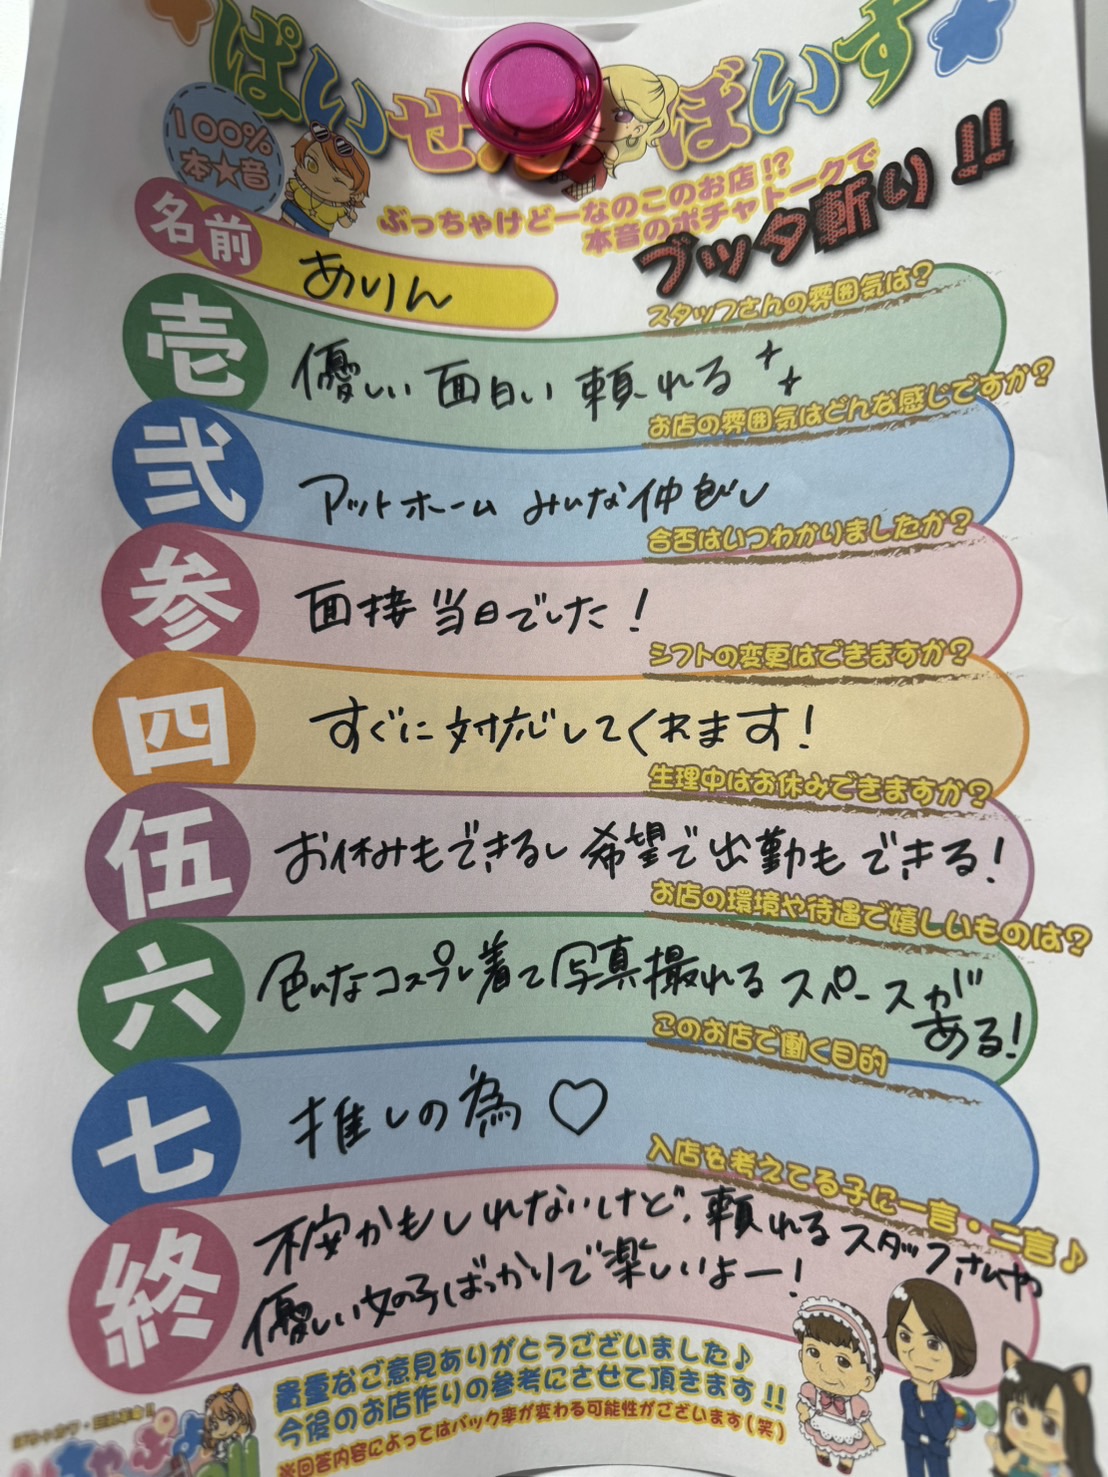 ぱいせ
ぼいす
100%
本★音
ぶっちゃけどーなのこのお店!?
本音のポチャトークで
ブッタ斬り!!
名前
ありん
スタッフさんの雰囲気は?
壱
優しい 面白い 頼れる
お店の雰囲気はどんな感じですか?
弐
アットホーム みんな仲良し
合否はいつわかりましたか?
参
面接当日でした!
シフトの変更はできますか?
四
すぐに対応してくれます!
生理中はお休みできますか?
伍
お休みもできるし希望で出勤もできる!
お店の環境や待遇で嬉しいものは?
六
色んなコスプレ着て写真撮れるスペースが
ある!
このお店で働く目的
七
推しの為♡
入店を考えてる子に一言・二言♪
終
不安かもしれないけど、頼れるスタッフさんや
優しい女の子ばっかりで楽しいよー!
貴重なご意見ありがとうございました♪
今後のお店作りの参考にさせて頂きます!!
※回答内容によってはバック率が変わる可能性がございます(笑)